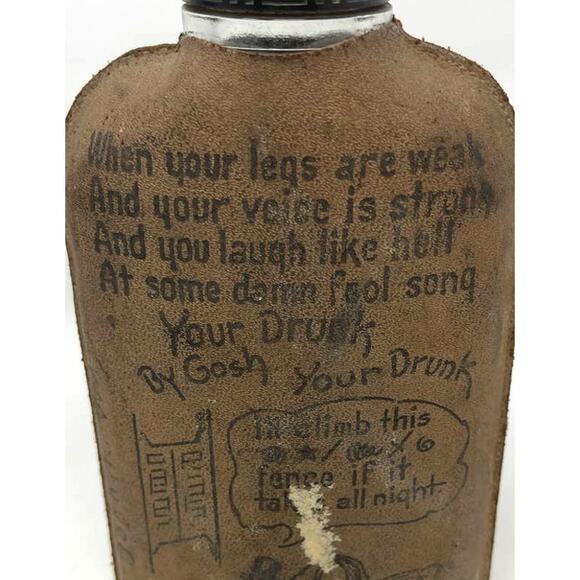 When your legs are weak
And your voice is strong
And you laugh like hell
At some damn fool song
Your Drunk
By Gosh Your Drunk
I'll climb this
fence if it
takes all night.